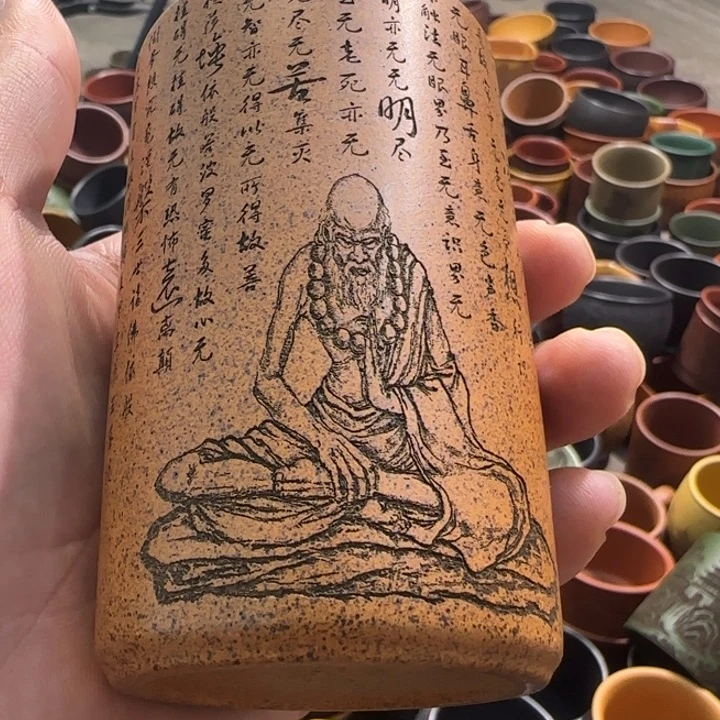 无眼耳鼻舌身意无色声香
触法无眼界乃至无意识界无
明亦无无明尽
至无老死亦无
尽无苦集灭
无智亦无得以无所得故菩
提萨埵依般若波罗蜜多故心无
挂碍无挂碍故无有恐怖远离颠
涅槃三世诸佛依般